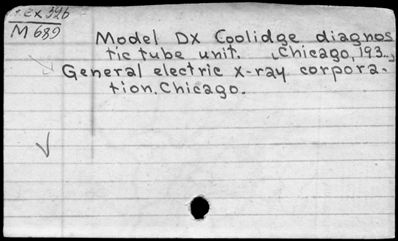 ex 326
M 689
Model DX Coolidge diagnos
tic tube unit. [Chicago, 193..]
General electric x-ray corpora-
tion. Chicago.